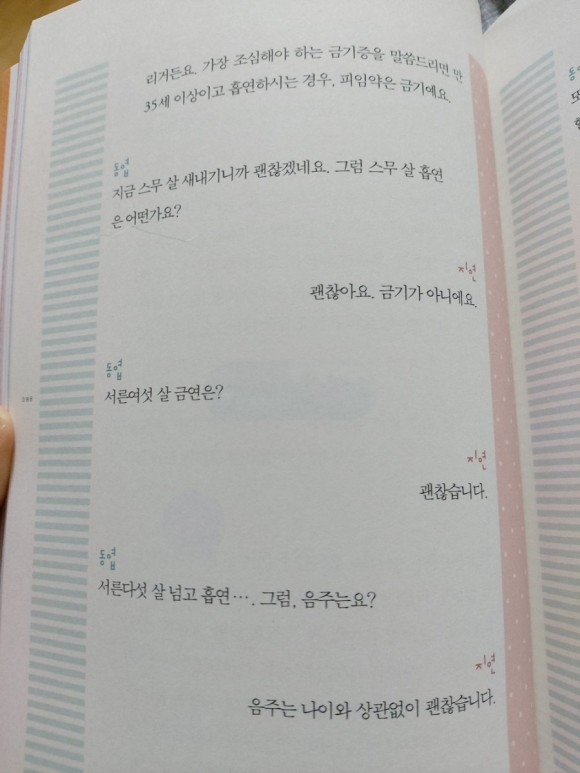 리거든요. 가장 조심해야 하는 금기증을 말씀드리면 만
35세 이상이고 흡연하시는 경우, 피임약은 금기예요.
동엽
지금 스무 살 새내기니까 괜찮겠네요. 그럼 스무 살 흡연
은 어떤가요?
지연
괜찮아요. 금기가 아니에요.
동엽
서른여섯 살 금연은?
지연
괜찮습니다.
동엽
서른다섯 살 넘고 흡연…. 그럼, 음주는요?
지연
음주는 나이와 상관없이 괜찮습니다.